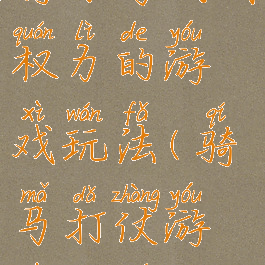 quán lì de yóu
权力的游
xì wán fǎ qí
戏玩法(骑
mǎ dǎ zhàng yóu
马打仗游